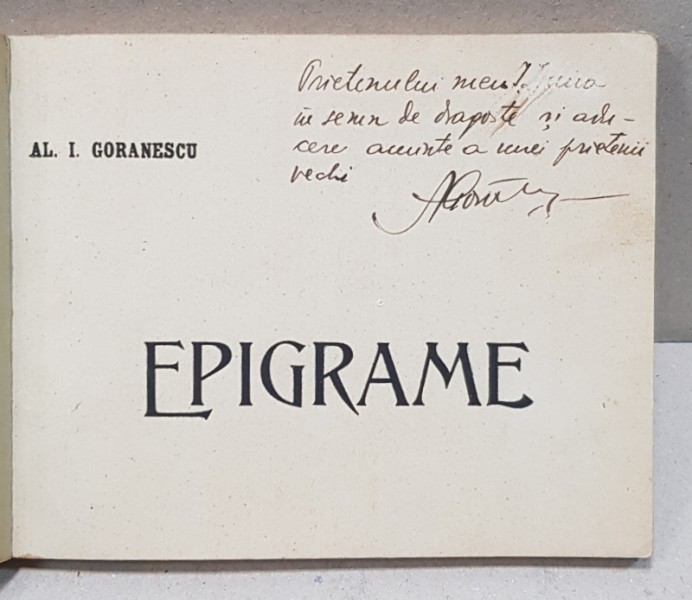 Prietenului meu
în semn de dragoste și adu-
cere aminte a unei prietenii
vechi
AL. I. GORANESCU
EPIGRAME